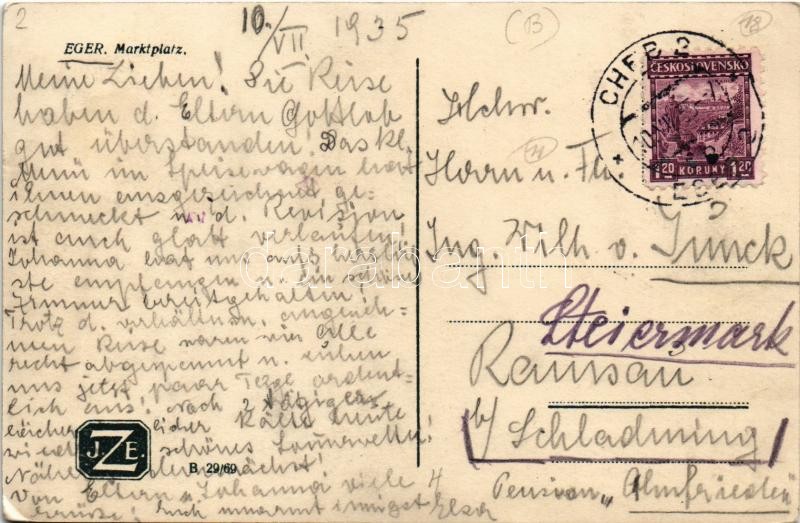 2
10./VII. 1935
(B)
EGER. Marktplatz.
Meine Lieben! Die Reise
haben d. Eltern Gottlob
gut überstanden! Das kl.
Menü im Speisewagen hat
ihnen ausgezeichnet ge-
schmeckt u. d. Revision
ist auch glatt verlaufen.
Johanna hat uns aufs herzlich-
ste empfangen u. ein schön.
Zimmer bereitgehalten!
Trotz d. verhältnism. angeneh-
men Reise waren wir alle
recht abgespannt u. ruhen
uns jetzt paar Tage ordent-
lich aus! Nach 2 tägiger
Kälte heute
wieder schönes Sommerwetter!
Näheres demnächst!
Von Eltern u. Johanna viele
Grüsse! Euch umarmt innigst Elsa
JZE.
B. 29/69
CHEB 2
EGER 2
ČESKOSLOVENSKO
1.20 KORUNY 1.20
Hchw.
Herrn u. Fr.
Ing. Wilh. v. Gunck
Steiermark
Ramsau
b/ Schladming
Pension „Almfrieden"
darabanth